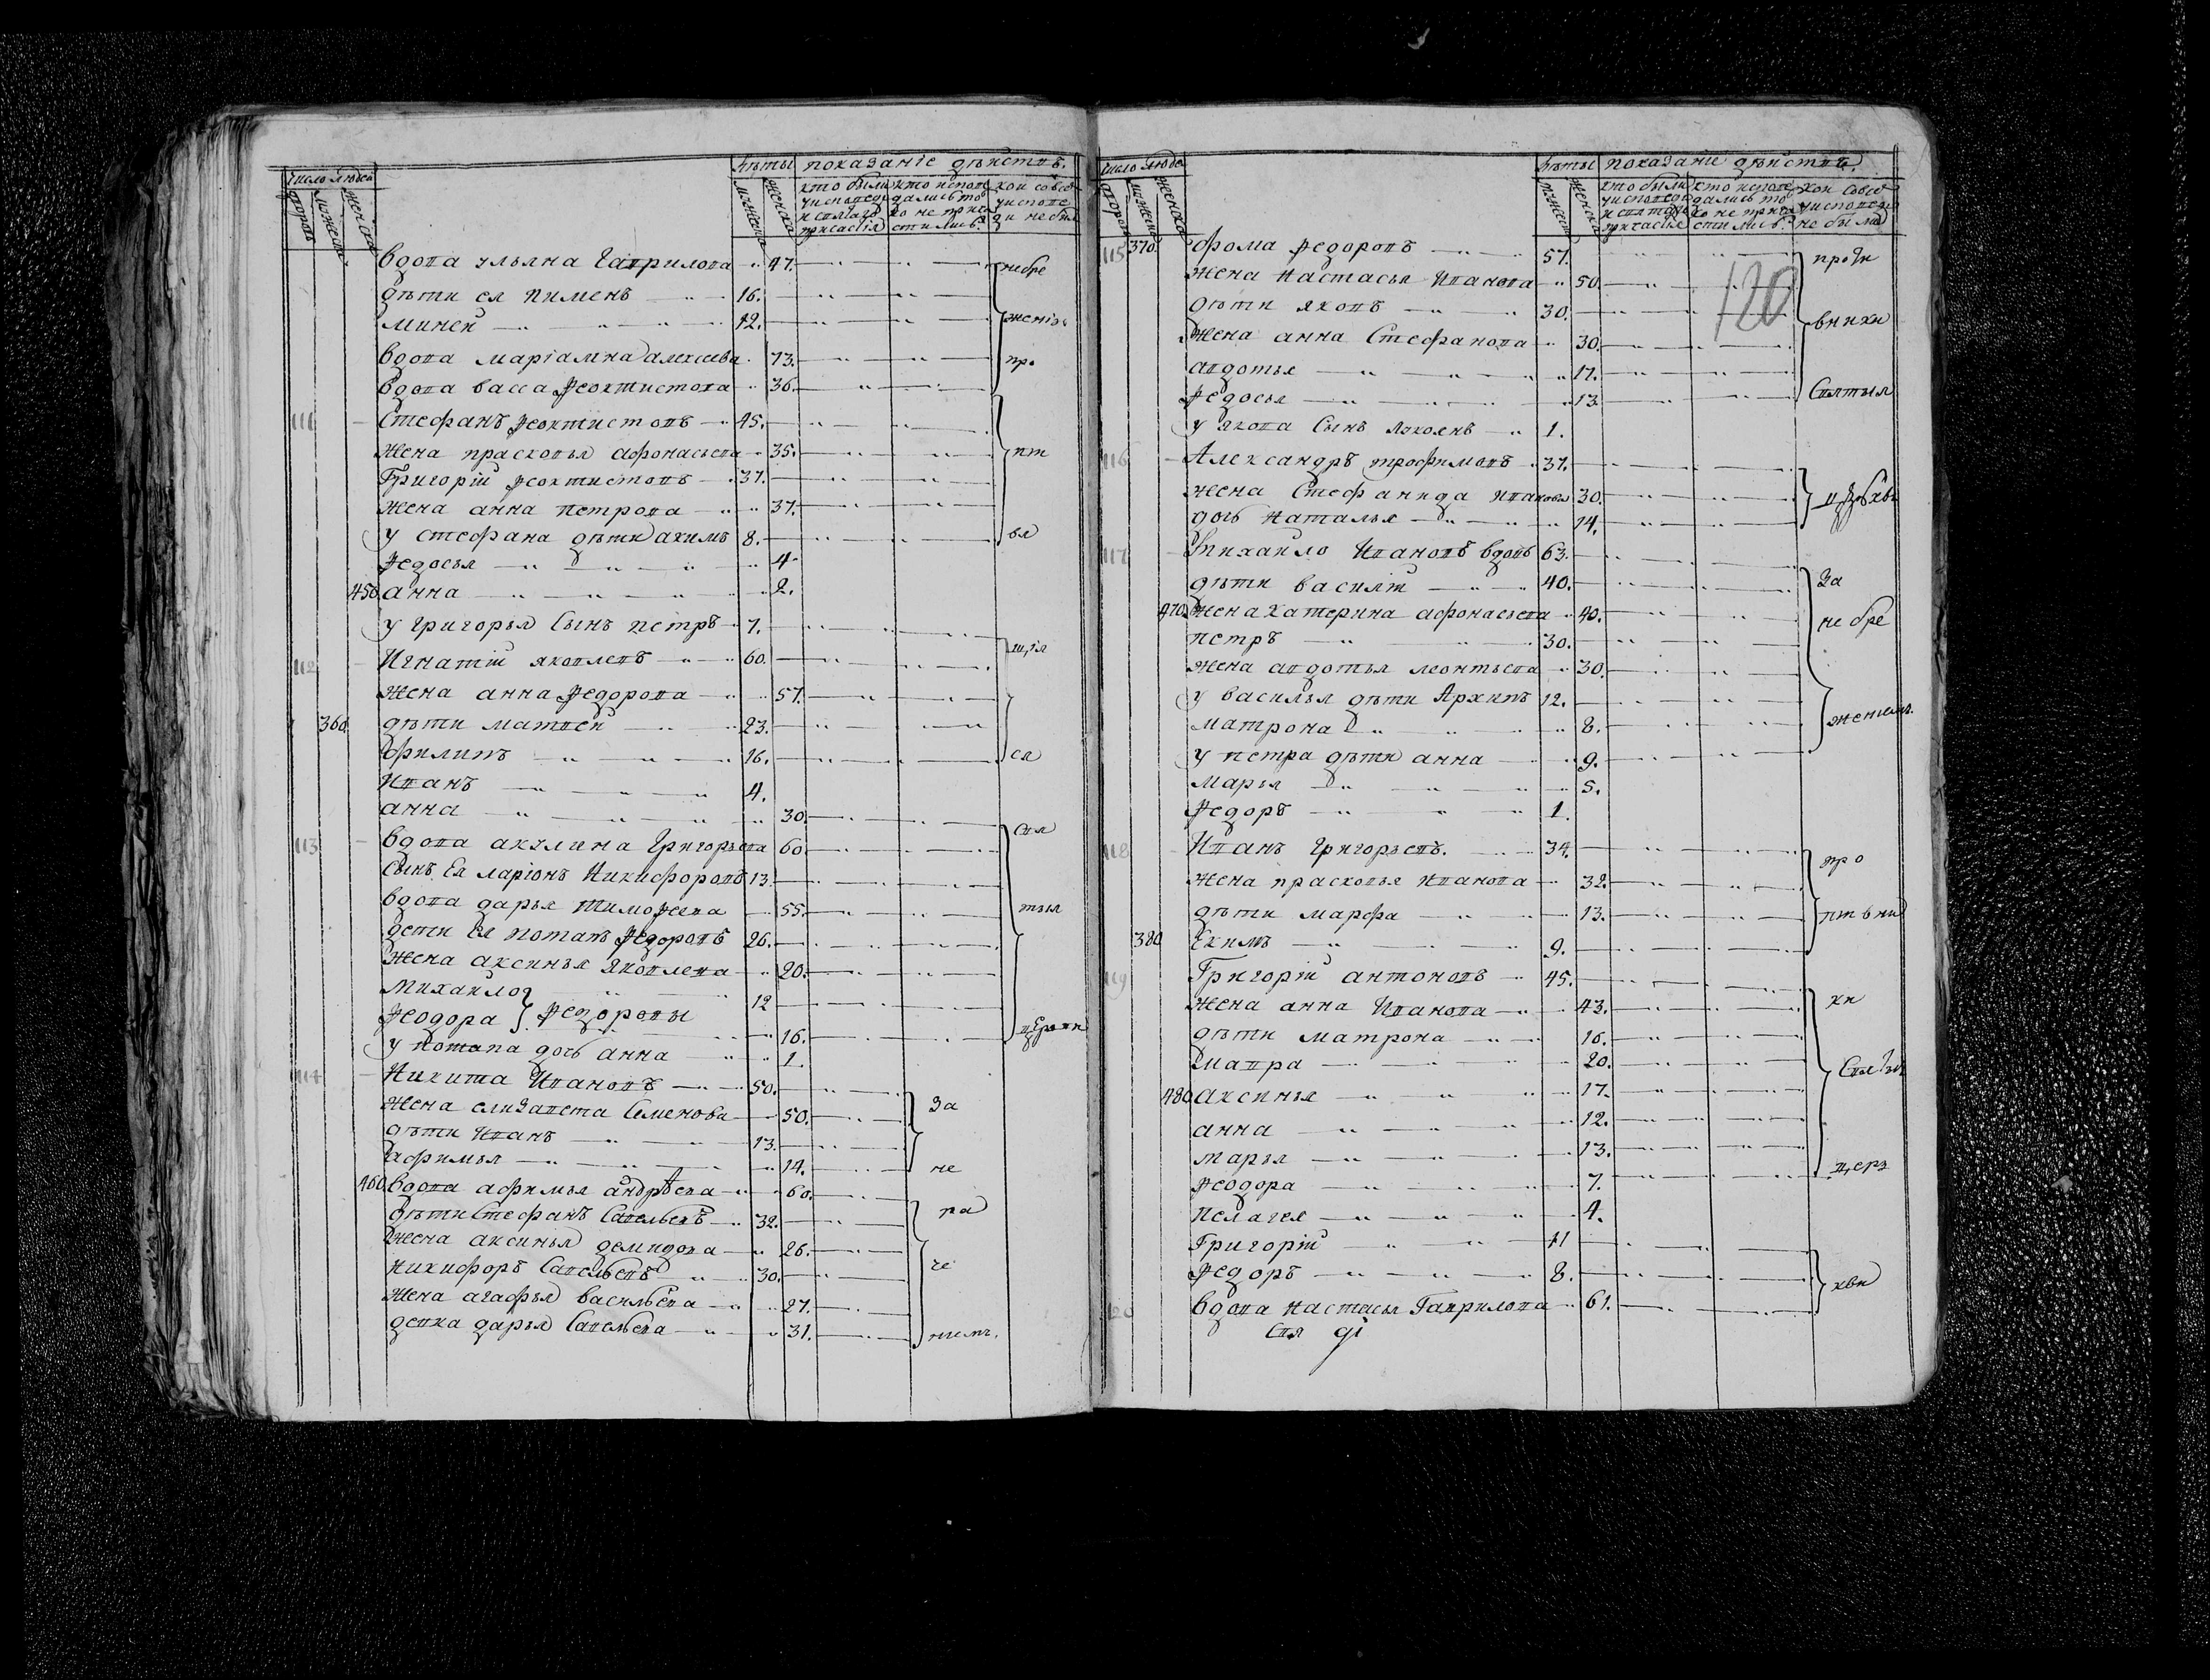 Число людей
лѣты показанiе дѣиствъ.
дворовъ
мужеска
женска
мужеска
женска
кто были у исповеди и святаго причастiя
кто исповедались то ко не причастились?
кои совсе у исповеди не были
вдова ульяна Гаврилова 47. небре
дѣти ея пименъ 16.
миней 12. женiемъ
вдова марiамна алексеева 73. пр.
вдова васса Ѳеоктистова 36.
111 Стефанъ Ѳеоктистовъ 45.
жена прасковья афонасьева 35. пт
Григорiй Ѳеоктистовъ 37.
жена анна петрова 37.
у стефана дѣти акимъ 8. вя
Ѳедосья 4.
450 анна 2.
у григорья сынъ петръ 7.
112 Игнатiй яковлевъ 60. щ,iя
жена анна Ѳедорова 57.
360. дѣти матвей 23.
филипъ 16. ся
Иванъ 4.
анна 30. свя
113 вдова акулина Григорьева 60.
сынъ ея ларiонъ Никифоровъ 13.
вдова дарья тимоѲеева 55. тыя
дети ея потапъ Ѳедоровъ 26.
жена аксинья яковлева 20.
михайло 12
Ѳеодора } Ѳедоровы 16. церкви
у потапа дочь анна 1.
114 Никита Ивановъ 50.
жена елизавета Семенова 50. За
дѣти Иванъ 13.
афимья 14. не
460. вдова афимья андрѣева 60.
дѣти стефанъ Савельевъ 32. ра
жена аксинья демидова 26.
никифоръ Савельевъ 30. че
жена агафья васильева 27.
девка дарья Савельева 31. нiемъ.
Число людей
лѣты показанiе дѣиствъ.
дворовъ
мужеска
женска
мужеск
женска
кто были у исповеди и святаго причастья
кто исповедались то ко не причастились?
кои совсе у исповеди не была
120
115 370. фома Ѳедоровъ 57. проти
жена настасья Иванова 50.
дѣти яковъ 30. вники
жена анна Стефанова 30.
авдотья 17.
Ѳедосья 13. святыя
у якова сынъ лукоянъ 1.
116 Александръ трофимовъ 37.
жена Стефанида иванова 30.
дочь наталья 14.
117 михайло Ивановъ вдовъ 63.
дѣти василiй 40. За
470. жена катерина афонасьева 40.
петръ 30. не бре
жена авдотья леонтьева 30.
у василья дѣти Архипъ 12.
матрона 8. женiемъ.
у петра дѣти анна 9.
марья 5.
Ѳедоръ 1.
118 Иванъ Григорьевъ. 34. про
жена прасковья Иванова 32.
дѣти марфа 13. тивни
380 Екимъ 9.
119 Григорiй антоновъ 45.
жена анна Иванова 43. ки
дѣти матрона 16.
мавра 20.
480. аксинья 17.
анна 12.
марья 13.
Ѳеодора 7. церк
пелагея 4.
Григорiй 11
Ѳедоръ 8. кви
120 вдова настасья Гаврилова 61.